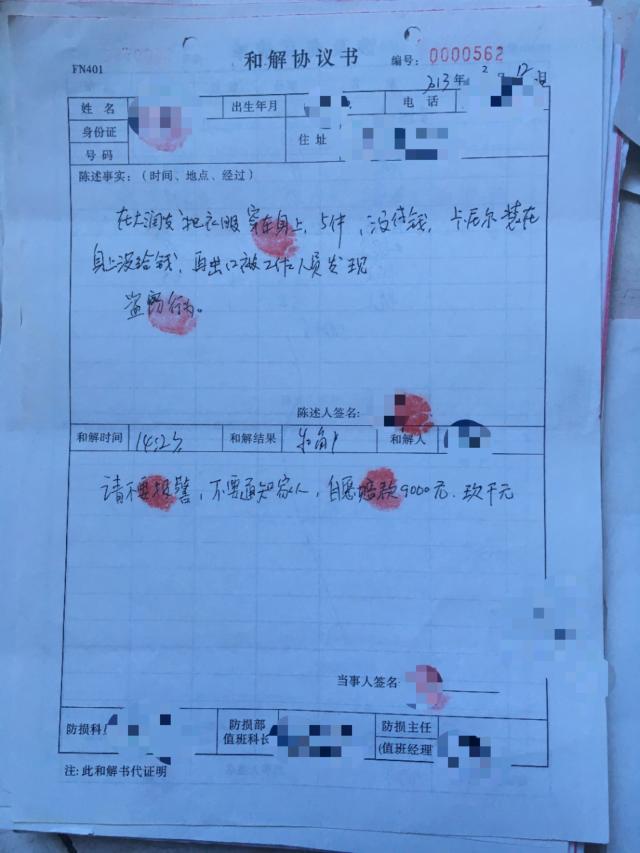 和解协议书
FN401
编号：0000562
2013年2月12日
姓名
出生年月
电话
身份证
号码
住址
陈述事实：（时间、地点、经过）
在大润发把衣服穿在身上，5件，没付钱，卡尼尔装在
身上没给钱，再出口被工作人员发现
盗窃行为。
陈述人签名：
和解时间
14:52分
和解结果
和解人
请不要报警，不要通知家人，自愿赔款9000元．玖千元
当事人签名：
防损科
防损部
值班科长
防损主任
(值班经理
注: 此和解书代证明